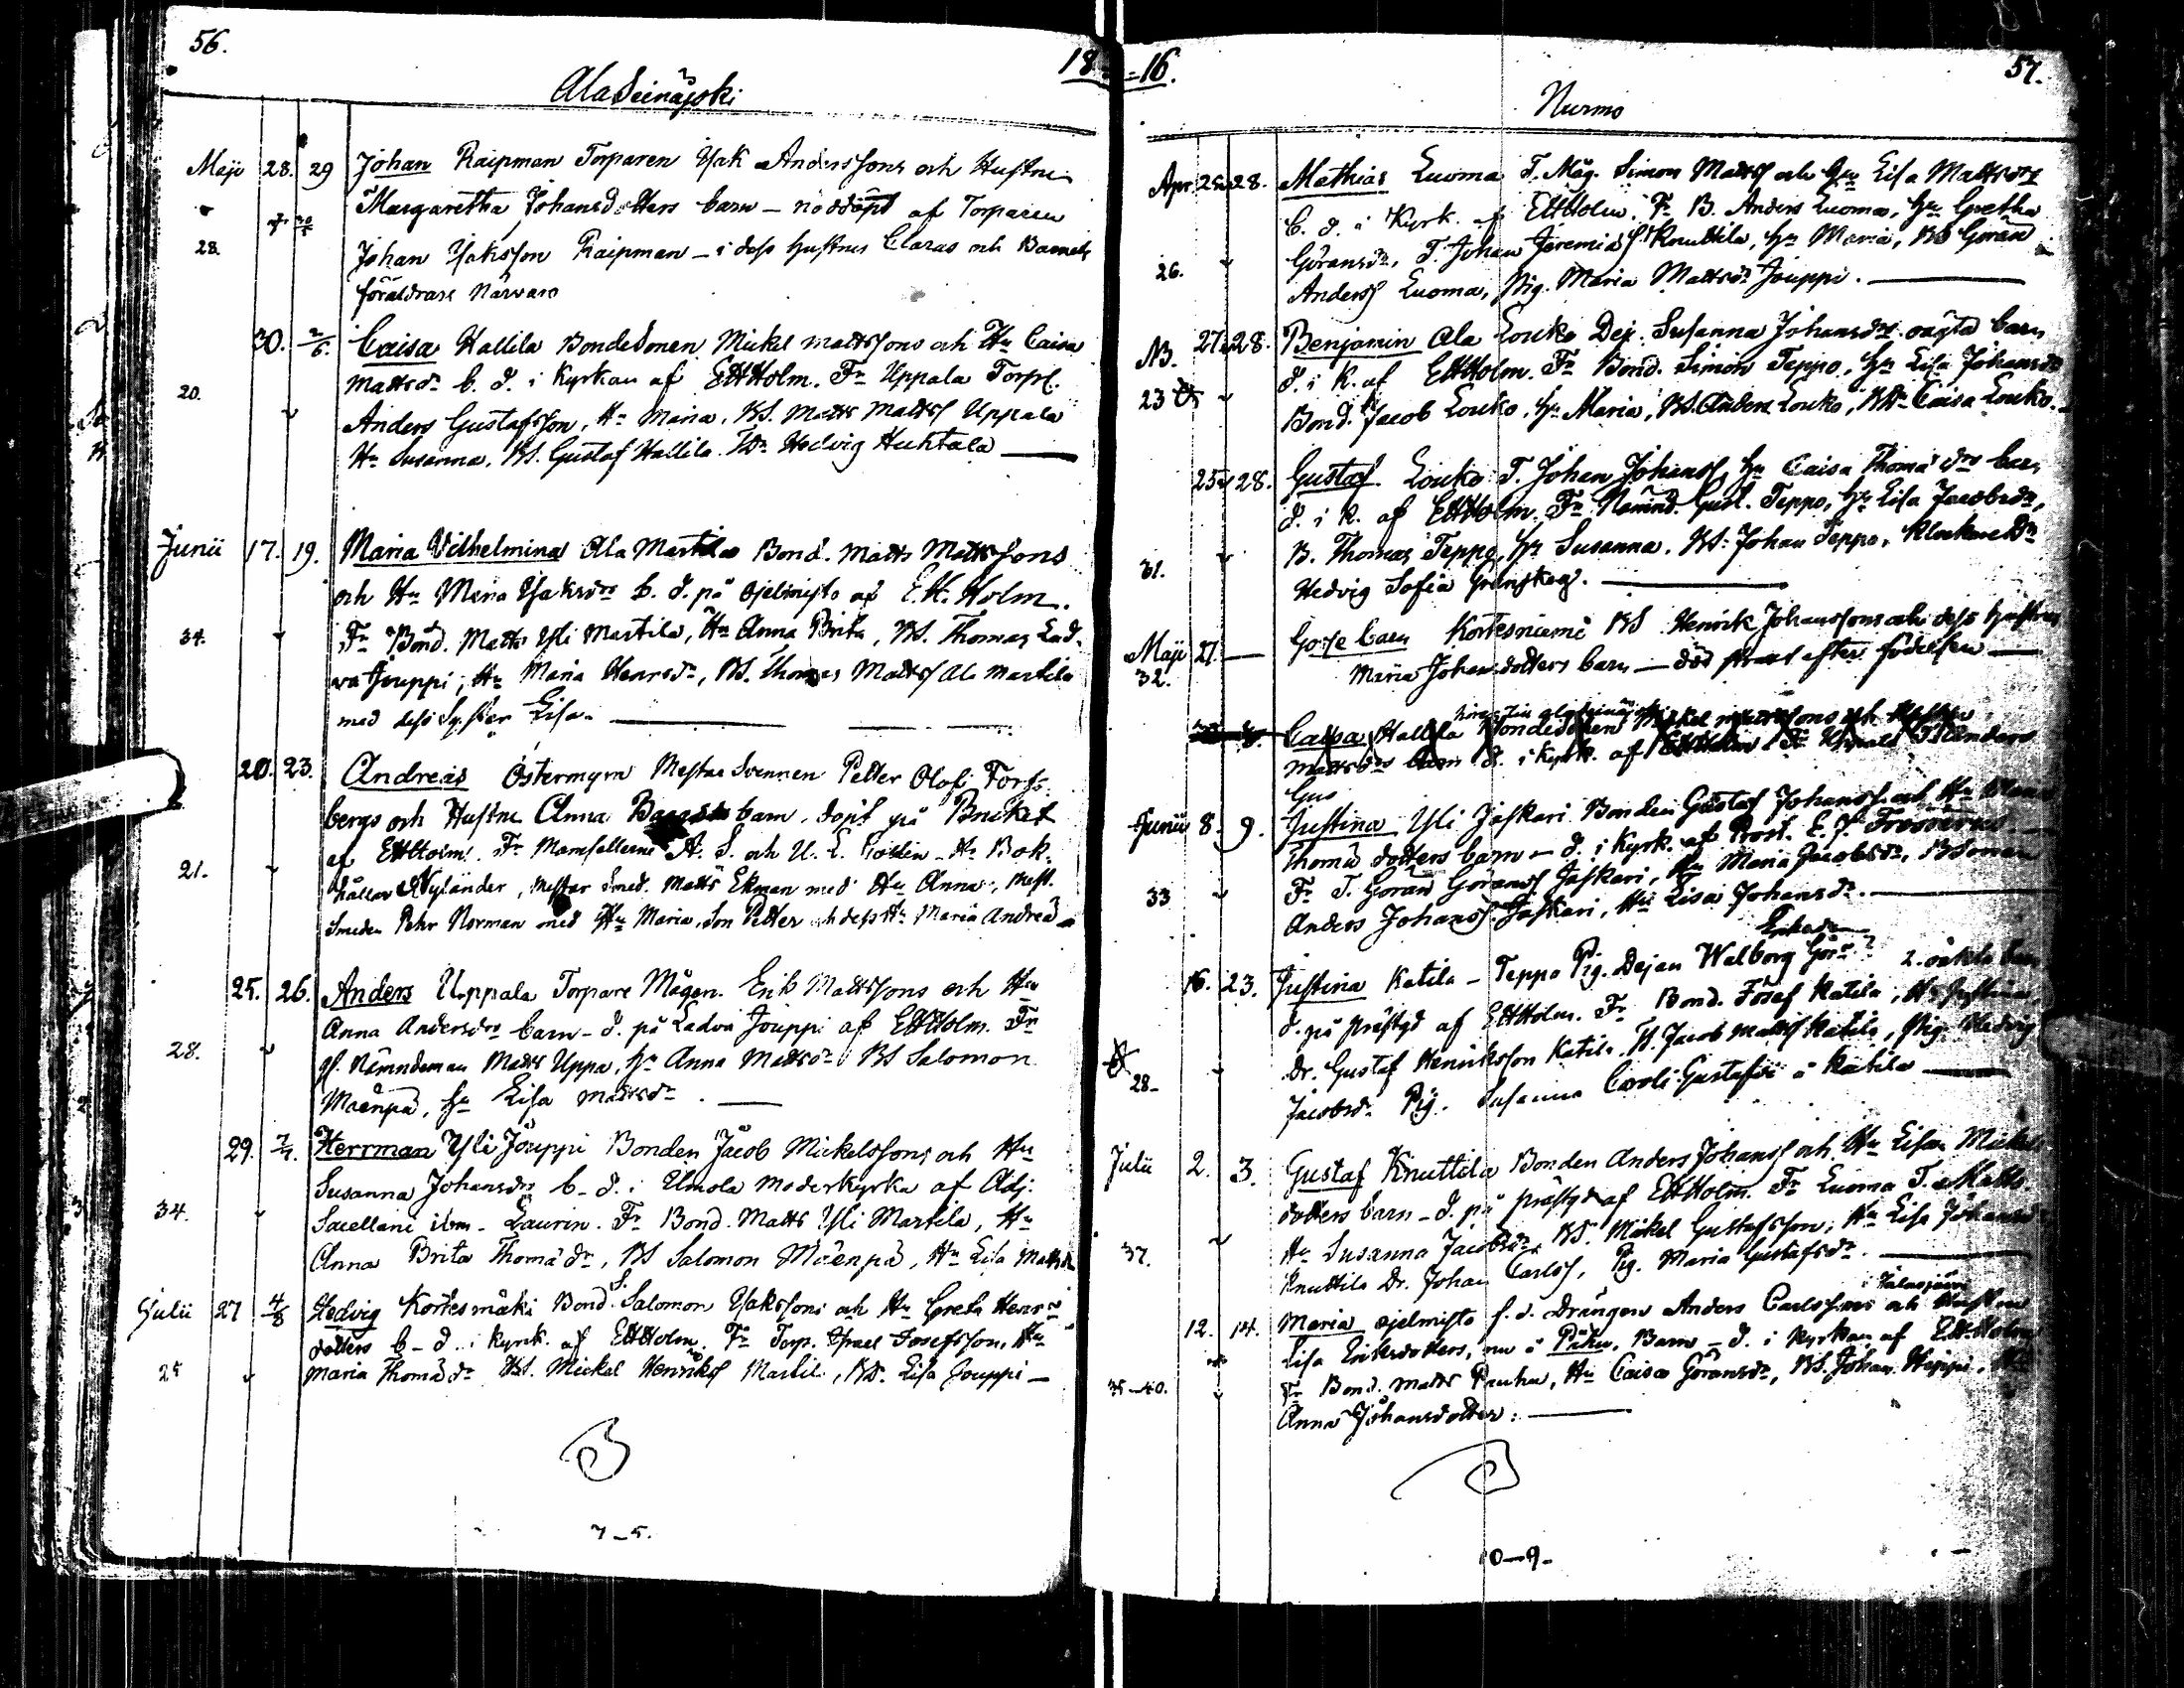 56.
18
Ala Seinäjoki
Maji 28. 29 Johan Raipman Torparen Isak Anderssons och Hustru
Margaretha Johansdotters barn - nöddöpt af Torparen
28. Johan Isaksson Raipman - i dess hustrus Claras och Barnets
föräldrars närvaro
30. 2/6. Caisa Hallila Bondesonen Mickel Mattssons och Hu Caisa
20. Mattsdr b. d. i Kyrkan af EHHolm. Fr Uppala Torp.
Anders Gustafsson, Hu Maria, BS. Matts Matts Uppala
Hu Susanna, BS. Gustaf Hallila Hedvig Huhtala
Junii 17. 19. Maria Vilhelmina Ala Martila Bond. Matts Mattssons
och Hu Maria Isaksdrs b. d. på Ojelmisto af E.H. Holm.
34. Fr Bond. Matts Yli Martila, Hu Anna Brita, BS. Thomas Lad-
va Jouppi, Hu Maria Henrsdr, BS. Thomas Matts Ala Martila
med dess Syster Lisa.
20. 23. Andreas Östermyra Mestar Svennen Petter Olof Fors-
bergs och Hustru Anna barn, döpt på Bruket
af EHHolm. Fr Mamsellerne A. S. och U. L. - Hr Bok-
21. hållar Nyländer, Mestar Smed. Matts Ekman med Hu Anna, Mest.
Smeden Pehr Norman med Hu Maria, Son Petter och dess Hu Maria Andreä
25. 26. Anders Uppala Torpare Mågen Erik Mattssons och Hu
Anna Andersdrs barn - d. på Ladva Jouppi af EHHolm. Fr
28. Nämndeman Matts Uppa, Hu Anna Mattsdr BS Salomon
Mäenpä, Hu Lisa Mattsdr
29. 7/7. Herrman Yli Jouppi Bonden Jacob Mickelssons och Hu
Susanna Johansdrs b. d. i Ilmola Moderkyrka af Adj.
34. Sacellani ibm. Laurin. Fr Bond. Matts Yli Martila, Hu
Anna Brita Thomä dr, BS Salomon Mäenpä, Hu Lisa Mattsdr
Julii 27 4/8 Hedvig Kortesmäki Bond. S. Salomon Isakssons och Hu Greta Henr-
dotters b - d. i Kyrk. af EHHolm. Fr Torp. Israel Josefsson, Hu
25 Maria Thomä dr BS. Mickel Henriks Martila, BD. Lisa Jouppi -
7-5.
-16.
57.
Nurmo
Apr. 25. 28. Mathias Luoma T. Måg. Simon Matts och Hu Lisa Mattsdrs
b. d. i Kyrk. af EHHolm. Fr B. Anders Luoma, Hu Gretha
26. Göransdr, T. Johan Jeremias Knuttila, Hu Maria, BS Göran
Anders Luoma, Pig. Maria Mattsdr Jouppi.
NB. 27. 28. Benjamin Ala Louko Dej. Susanna Johansdrs oägta barn
23 d. i K. af EHHolm. Fr Bond. Simon Teppo, Hu Lisa Johansdr
Bond. Jacob Louko, Hu Maria, BS. Anders Louko, Caisa Louko.
25. 28. Gustaf Louko T. Johan Johans, Hu Caisa Thomä drs barn
d. i K. af EHHolm. Fr Nämnd. Gust. Teppo, Hu Lisa Jacobsdr,
31. B. Thomas Teppo, Hu Susanna. BS. Johan Teppo, Klockare Dr
Hedvig Sofia
Maji 27 Gosse barn Kortesniemi BS Henrik Johanssons och dess hustrus
32. Maria Johansdotters barn - död strax efter födelsen
Caisa Hallila Bondesonen Mickel Mattssons och Hustru
Mattsdrs barn d. i Kyrk. af EHHolm. Fr Uppala Anders
Gus
Junii 8. 9. Justina Yli Jaskari Bonden Gustaf Johans och Hu
Thomä dotters barn - d. i Kyrk. af Prost. E. J. Frosterus.
33 Fr T. Göran Görans Jaskari, Hu Maria Jacobsdr, Bonden
Anders Johans Jaskari, Hu Lisa Johansdr.
Eriksdr
16. 23. Justina Katila - Teppo Pig. Dejan Walborg Görs? 2. oäkta barn
d. på prästgd af EHHolm. Fr Bond. Josef Katila, Hu Justina,
28- Dr. Gustaf Henriksson Katila. Jacob Matts Katila, Pig. Hedvig
Jacobsdr Pig. Susanna Caroli Gustafsdr å Katila
Julii 2. 3. Gustaf Knuttila Bonden Anders Johans och Hu Lisa Mickels-
dotters barn - d. på prästgd af EHHolm. Fr Luoma T. Matts
37. Hu Susanna Jacobsdr, BS. Mickel Gustafsson, Hu Lisa Johansdr
Knuttila Dr. Johan Carls, Pig. Maria Gustafsdr.
i Jalasjärvi
12. 14. Maria Ojelmisto f. d. Drängen Anders Carlssons och Hustru
Lisa Eriksdotters, nu i Barn - d. i Kyrkan af EHHolm
35-40. Fr Bond. Matts Pauha, Hu Caisa Göransdr, BS. Johan
Anna Johansdotter.
10-9-